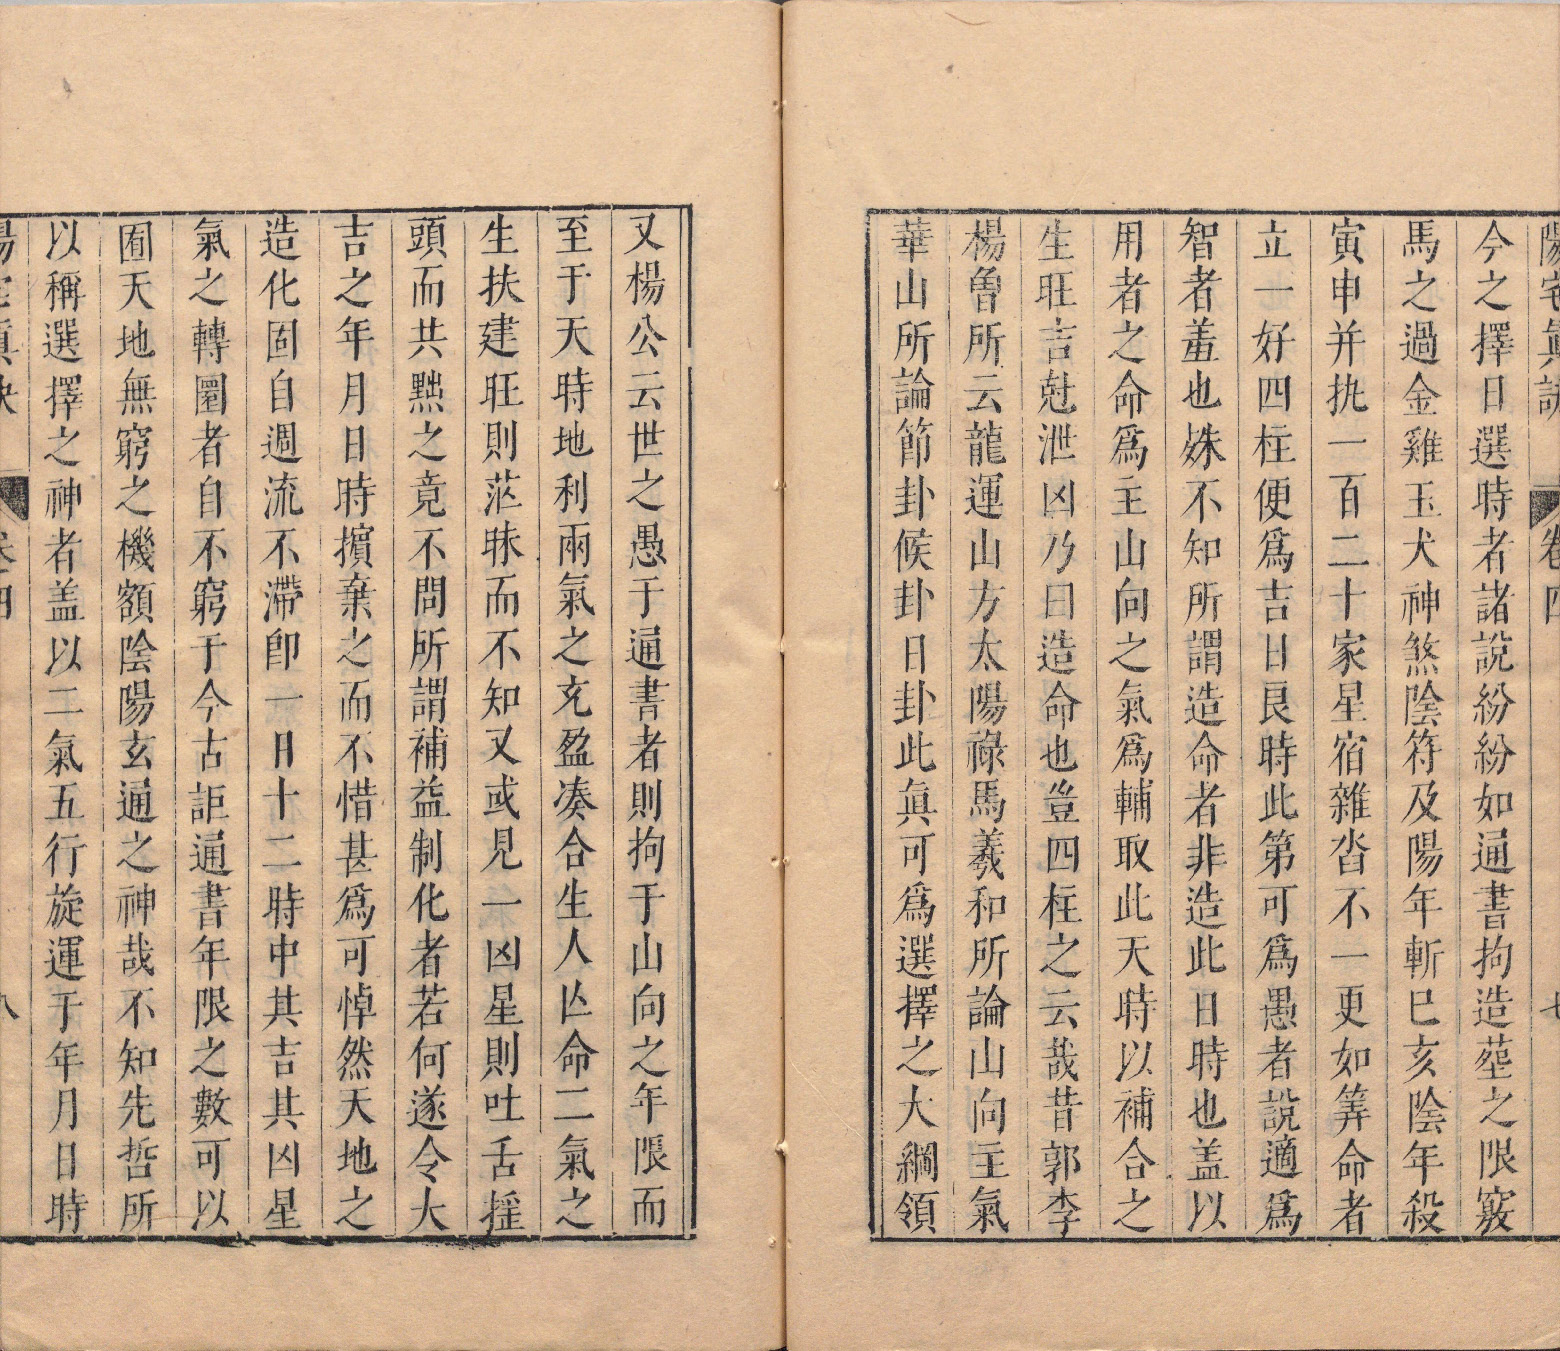 陽宅真訣 卷四 七
今之擇日選時者諸說紛紛如通書拘造塟之限竅
馬之過金雞玉犬神煞陰符及陽年斬巳亥陰年殺
寅申并执一百二十家星宿雜沓不一更如筭命者
立一好四柱便爲吉日艮時此第可爲愚者說適爲
智者羞也姝不知所謂造命者非造此日時也盖以
用者之命爲主山向之氣爲輔取此天時以補合之
生旺吉尅泄凶乃曰造命也豈四柱之云哉昔郭李
楊曾所云龍運山方太陽祿馬羲和所論山向主氣
華山所論節卦候卦日卦此真可爲選擇之大綱領
又楊公云世之愚于通書者則拘于山向之年限而
至于天時地利兩氣之充盈湊合生人亡命二氣之
生扶建旺則茫昧而不知又或見一凶星則吐舌搖
頭而共黙之竟不問所謂補益制化者若何遂令大
吉之年月日時擯棄之而不惜甚爲可悼然天地之
造化固自週流不滯卽一日十二時中其吉其凶星
氣之轉圜者自不窮于今古詎通書年限之數可以
囿天地無窮之機額陰陽玄通之神哉不知先哲所
以稱選擇之神者盖以二氣五行旋運于年月日時
陽宅真訣 卷四 八